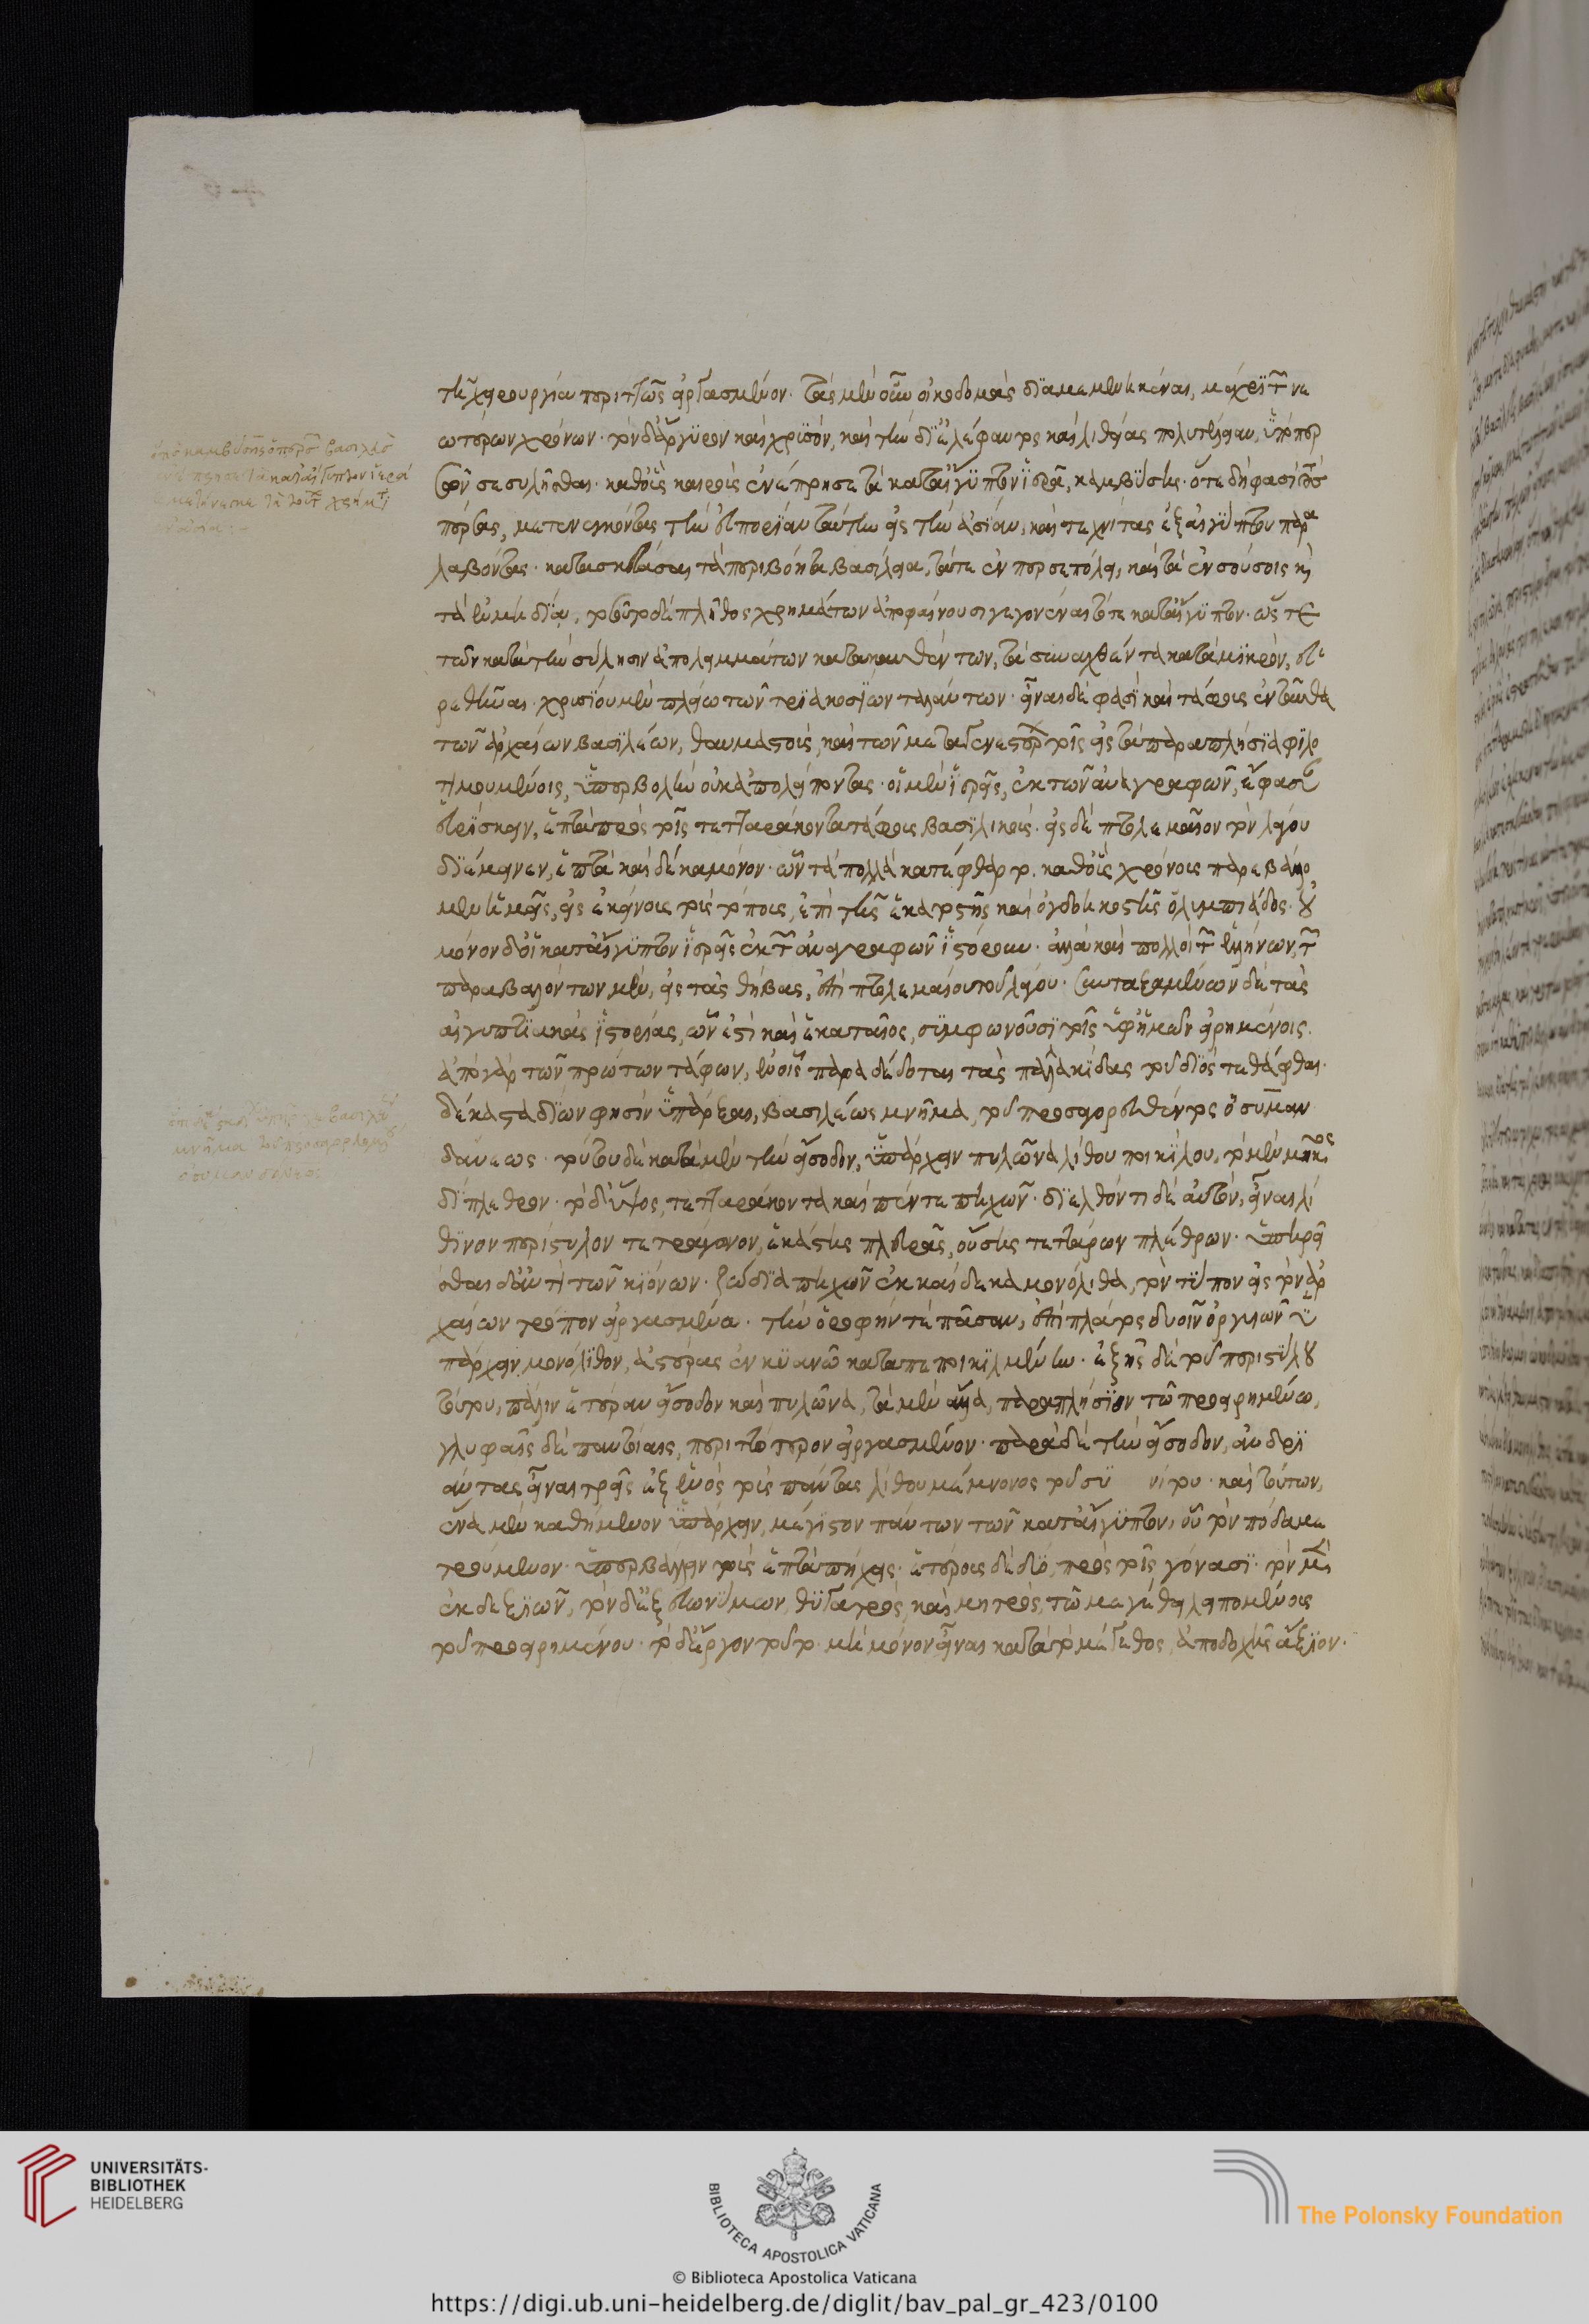 τῇ χειρουργίᾳ περιττῶς εἰργασμένον. τὰς μὲν οὖν οἰκοδομὰς διαμεμενηκέναι, μέχρι τῶν νε
ωτέρων χρόνων. τὸν δ' ἄργυρον καὶ χρυσὸν, καὶ τὴν δι' ἐλέφαντος καὶ λιθείας πολυτέλειαν, ὑπὸ περ
σῶν σεσυλῆσθαι. καθ' οὓς καιροὺς ἐνέπρησε τὰ κατ' αἴγυπτον ἱερὰ, καμβύσης. ὅτε δή φασι τοὺς
πέρσας, μετενεγκόντας τὴν εὐπορίαν ταύτην εἰς τὴν ἀσίαν, καὶ τεχνίτας ἐξ αἰγύπτου παρα
λαβόντας. κατασκευάσαι τὰ περιβόητα βασίλεια, τά τε ἐν περσεπόλει, καὶ τὰ ἐν σούσοις καὶ
τὰ ἐν μηδίᾳ, τοσοῦτο δὲ πλῆθος χρημάτων ἀποφαίνουσι γεγονέναι τότε κατ' αἴγυπτον. ὥστε
τῶν κατὰ τὴν σύλησιν ἀπολειμμάτων κατακαυθέντων, τὰ συναχθέντα κατὰ μικρὸν, εὑ
ρεθῆναι. χρυσίου μὲν πλείω τῶν τριακοσίων ταλάντων. εἶναι δέ φασι καὶ τάφους ἐνταῦθα
τῶν ἀρχαίων βασιλέων, θαυμαστοὺς, καὶ τῶν μεταγενεστέρων τοῖς εἰς τὰ παραπλήσια φιλο
τιμουμένοις, ὑπερβολὴν οὐκ ἀπολείποντας. οἱ μὲν ἱερεῖς, ἐκ τῶν ἀναγραφῶν, ἔφασαν
εὑρίσκειν, ἑπτὰ πρὸς τοῖς τετταράκοντα τάφους βασιλικούς. εἰς δὲ πτολεμαῖον τὸν λάγου
διέμεινεν, ἑπτὰ καὶ δέκα μόνον. ὧν τὰ πολλὰ κατέφθαρτο. καθ' οὓς χρόνους παρεβάλο
μεν ἡμεῖς, εἰς ἐκείνους τοὺς τόπους, ἐπὶ τῆς ἑκατοστῆς καὶ ὀγδοηκοστῆς ὀλυμπιάδος. οὐ
μόνον δ' οἱ κατ' αἴγυπτον ἱερεῖς ἐκ τῶν ἀναγραφῶν ἱστόρουν. ἀλλὰ καὶ πολλοὶ τῶν ἑλλήνων, τῶν
παραβαλόντων μὲν, εἰς τὰς θήβας, ἐπὶ πτολεμαίου τοῦ λάγου. συνταξαμένων δὲ τὰς
αἰγυπτιακὰς ἱστορίας, ὧν ἐστὶ καὶ ἑκαταῖος, συμφωνοῦσι τοῖς ὑφ' ἡμῶν εἰρημένοις.
ἀπὸ γὰρ τῶν πρώτων τάφων, ἐν οἷς παραδέδοται τὰς παλλακίδας τοῦ διὸς τεθάφθαι.
δέκα σταδίων φησὶν ὑπάρξαι, βασιλέως μνῆμα, τοῦ προσαγορευθέντος ὀσυμαν
δύεως. τούτου δὲ κατὰ μὲν τὴν εἴσοδον, ὑπάρχειν πυλῶνα λίθου ποικίλου, τὸ μὲν μῆκος
δίπλεθρον. τὸ δ' ὕψος, τετταράκοντα καὶ πέντε πήχων. διελθόντι δὲ αὐτὸν, εἶναι λί
θινον περίστυλον τετράγωνον, ἑκάστης πλευρᾶς, οὔσης τετάρων πλέθρων. ὑπηρεῖ
σθαι δ' ἀντὶ τῶν κιόνων. ζώδια πήχων ἑκκαίδεκα μονόλιθα, τὸν τύπον εἰς τὸν ἀρ
χαίων τρόπον εἰργασμένα. τὴν ὀροφήν τε πᾶσαν, ἐπὶ πλάτος δυοῖν ὀργυιῶν ὑ
πάρχειν μονόλιθον, ἀστέρας ἐν κυανῷ καταπεποικιλμένην. ἑξῆς δὲ τοῦ περιστύλου
τούτου, πάλιν ἑτέραν εἴσοδον καὶ πυλῶνα, τὰ μὲν ἄλλα, παραπλήσιον τῷ προειρημένῳ,
γλυφαῖς δὲ παντοίαις, περιττότερον εἰργασμένον. παρὰ δὲ τὴν εἴσοδον, ἀνδρι
άντας εἶναι τρεῖς ἐξ ἑνὸς τοὺς πάντας λίθου μέμνονος τοῦ συ νίτου. καὶ τούτων,
ἕνα μὲν καθήμενον ὑπάρχειν, μέγιστον πάντων τῶν κατ' αἴγυπτον, οὗ τὸν πόδα με
τρούμενον. ὑπερβάλλειν τοὺς ἑπτὰ πήχεις. ἑτέρους δὲ δύο, πρὸς τοῖς γόνασι. τὸν μὲν
ἐκ δεξιῶν, τὸν δὲ ἐξ εὐωνύμων, θυγατρὸς, καὶ μητρὸς, τῷ μεγέθει λειπομένους
τοῦ προειρημένου. τὸ δ' ἔργον τοῦτο μὴ μόνον εἶναι κατὰ τὸ μέγεθος, ἀποδοχῆς ἄξιον.
UNIVERSITÄTS-
BIBLIOTHEK
HEIDELBERG
BIBLIOTECA APOSTOLICA VATICANA
The Polonsky Foundation
© Biblioteca Apostolica Vaticana
https://digi.ub.uni-heidelberg.de/diglit/bav_pal_gr_423/0100